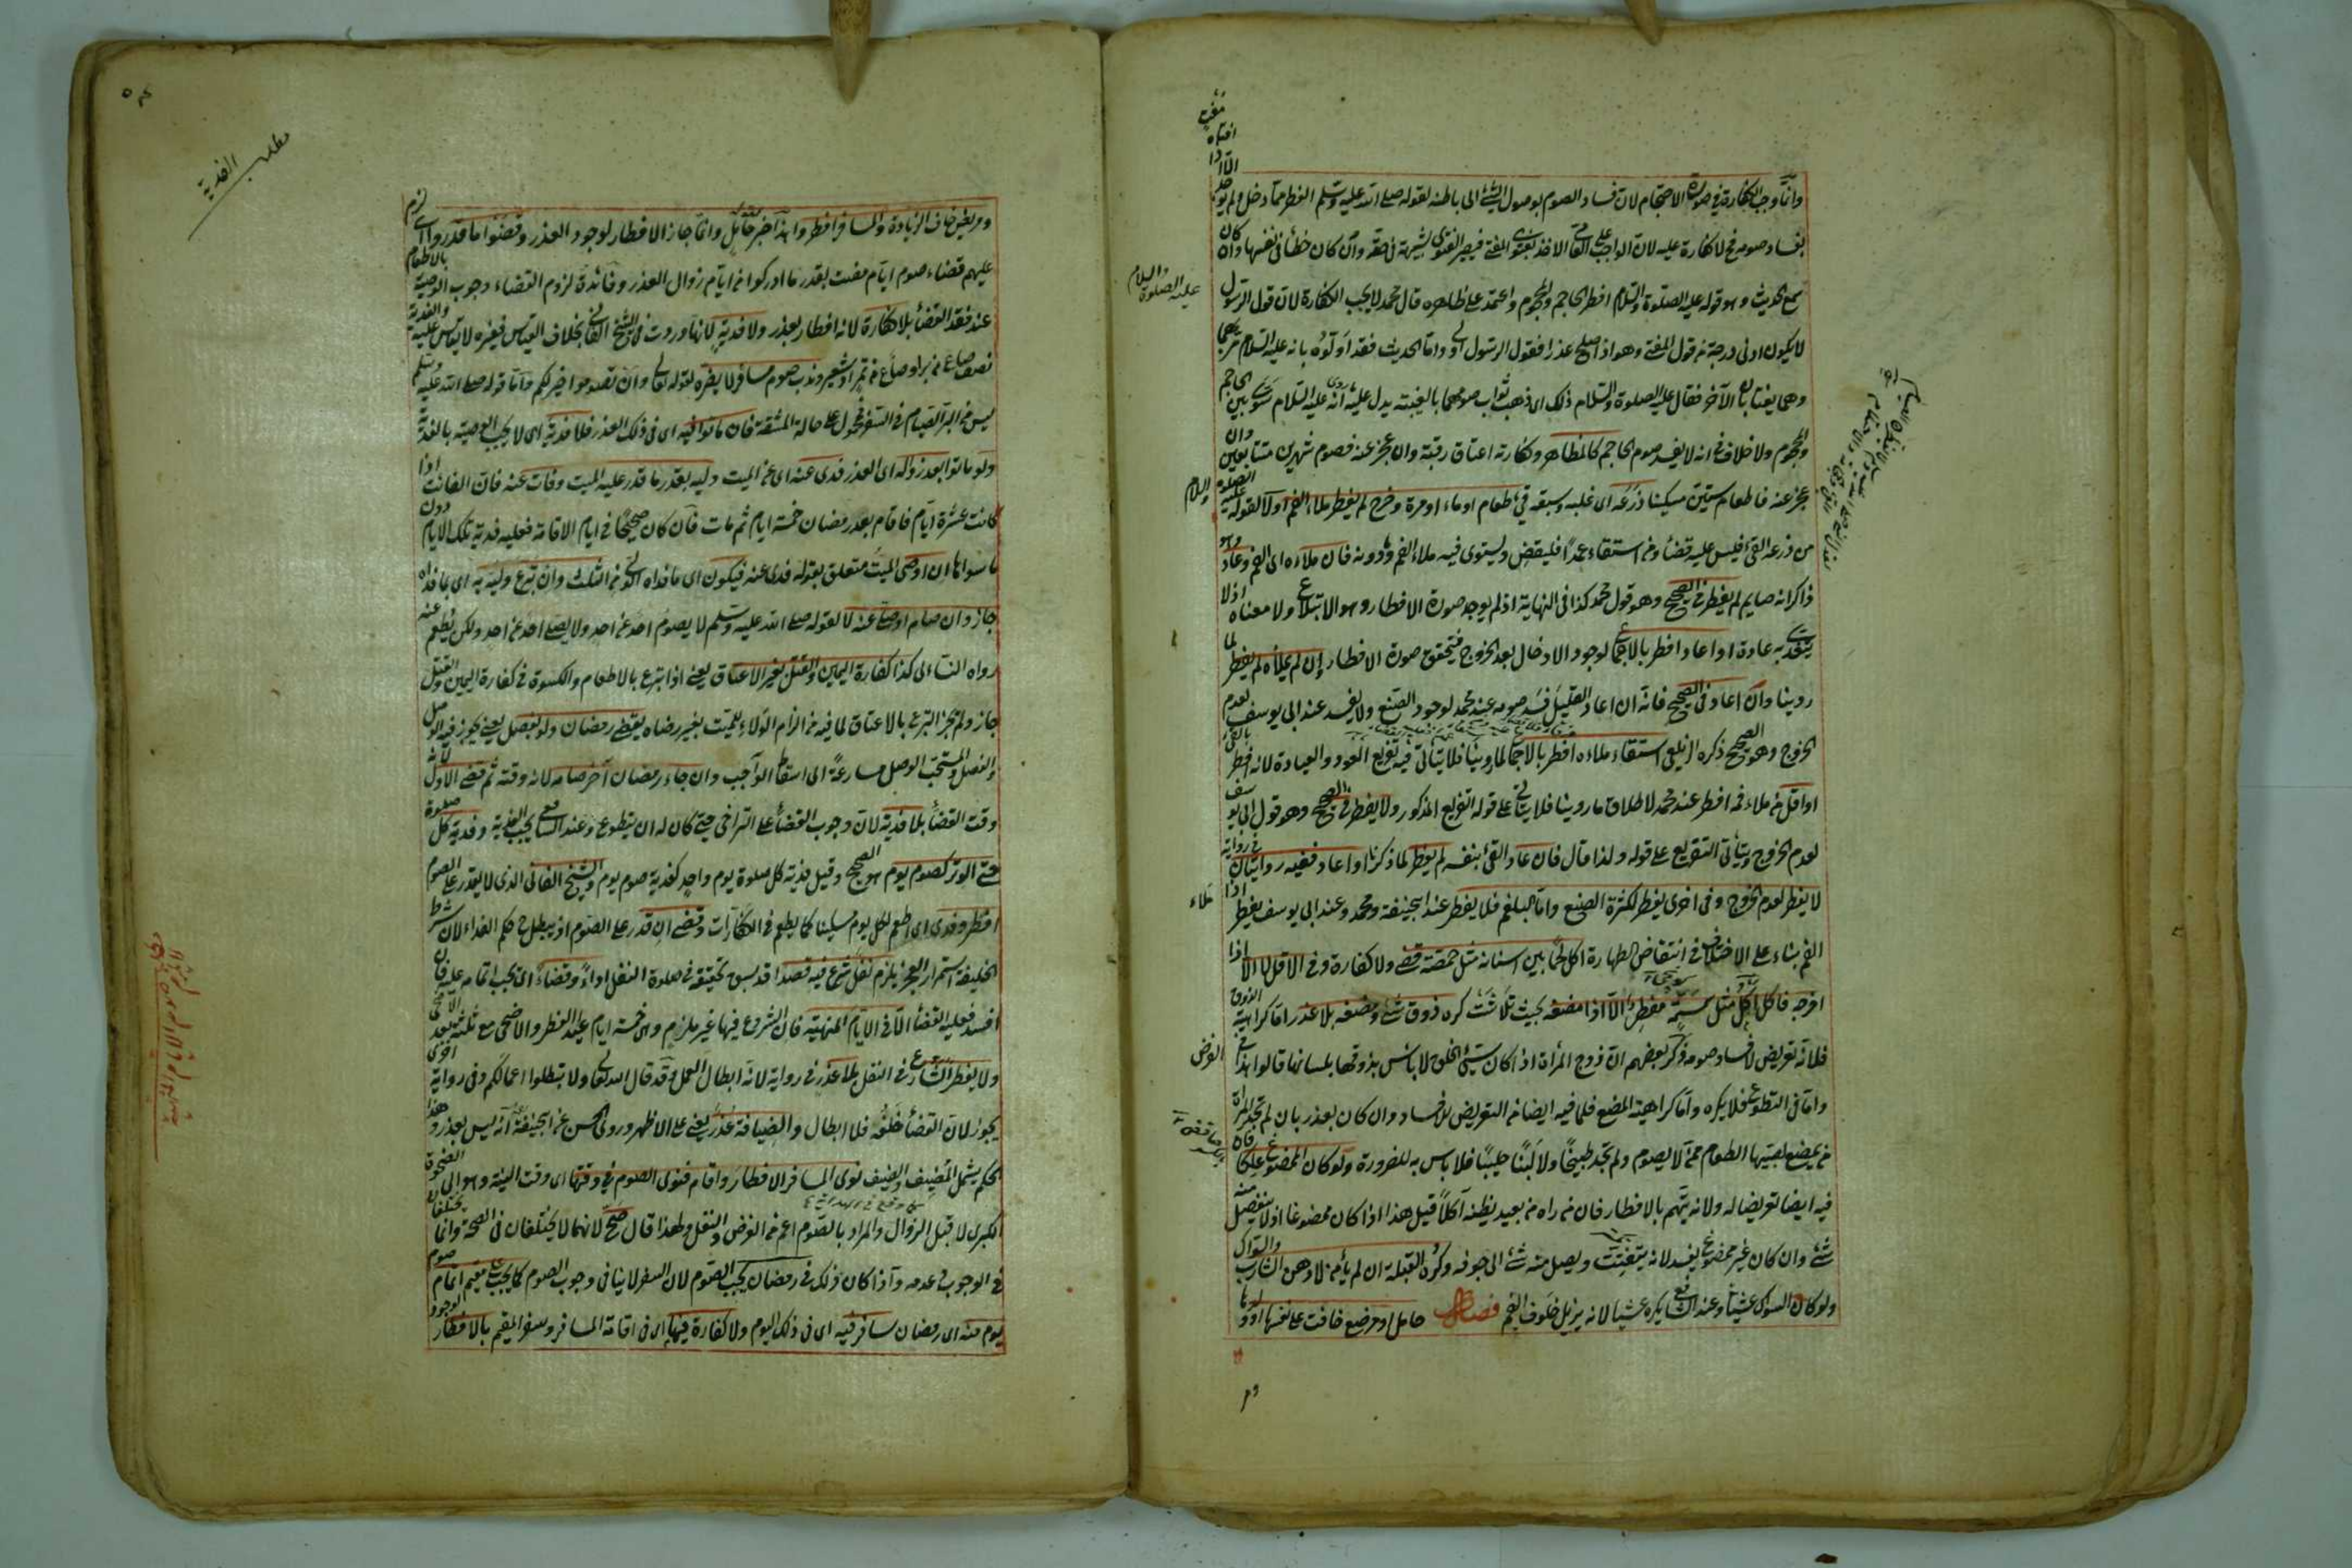 وانما وجب الكفارة في صورة الاحتجام لان فساد الصوم بوصول الشئ الى باطنه لقوله صلى الله عليه وسلم الفطر مما دخل ولم يوجد الا اذا افتاه مفت
بفساد صومه فح لا كفارة عليه لان الواجب على العامي الاخذ بفتوى المفتي فيصير الفتوى شبهة في حقه وان كان خطأ في نفسها وان كان
سمع الحديث وهو قوله عليه الصلوة والسلام افطر الحاجم والمحجوم واعتمد على ظاهره قال محمد لا يجب الكفارة لان قول الرسول
لا يكون ادنى درجة من قول المفتي وهو اذا صلح عذرا فقول الرسول اولى واما الحديث فقد اولوه بانه عليه السلام مر بهما
وهما يغتابان الآخر فقال عليه الصلوة والسلام ذلك اى ذهب ثواب صومهما بالغيبة يدل عليه انه عليه السلام سوى بين الحاجم
والمحجوم ولا خلاف في انه لا يفسد صوم الحاجم كالمظاهر وكفارته اعتاق رقبة وان عجز عنه فصوم شهرين متتابعين وان
عجز عنه فاطعام ستين مسكينا ذرعه اى غلبه وسبقه قئ طعام او ماء او مرة وخرج لم يفطر ملاء الفم اولا لقوله عليه الصلوة والسلام
من ذرعه القئ فليس عليه قضاء ومن استقاء عمدا فليقض ويستوى فيه ملاء الفم ودونه فان ملاءه اى الفم وعاد وهو
ذاكر انه صايم لم يفطر في الصحيح وهو قول محمد كذا في النهاية اذ لم يوجد صورة الافطار وهو الابتلاع ولا معناه اذ لا
يتغذى به عادة او اعاد افطر بالاجماع لوجود الادخال بعد الخروج فيتحقق صورة الافطار ان لم يملأه لم يفطر لما
روينا وان اعاد في الصحيح فانه ان اعاد القليل فسد صومه عند محمد لوجود الصنع ولا يفسد عند ابي يوسف لعدم
الخروج وهو الصحيح ذكره الزيلعي استقاء ملاءه افطر بالاجماع لما روينا فلا يتأتى فيه تفريع العود والعيادة لانه افطر بالقئ
او اقل من ملاء فمه افطر عند محمد لاطلاق ما روينا فلا يتأتى على قوله التفريع المذكور ولا يفطر في الصحيح وهو قول ابي يوسف
لعدم الخروج ويتأتى التفريع على قوله ولذا قال فان عاد القئ بنفسه لم يفطر لما ذكرنا او اعاد ففيه روايتان في رواية
لا يفطر لعدم الخروج وفي اخرى يفطر لكثرة الصنع واما البلغم فلا يفطر عند ابي حنيفة ومحمد وعند ابي يوسف يفطر اذا ملاء
الفم بناء على الاختلاف في انتقاض الطهارة اكل لحما بين اسنانه مثل حمصة قضى ولا كفارة وفي الاقل لا الا اذا
اخرجه فاكل اكل مثل سمسمة مفطر الا اذا مضغه بحيث تلاشت كره ذوق شئ ومضغه بلا عذر اما كراهية الذوق
فلانه تعريض لافساد صومه وذكر بعضهم ان زوج المرأة اذا كان سيئ الخلق لا باس بذوقها بلسانها قالوا هذا في الفرض
واما في التطوع فلا يكره واما كراهية المضغ فلما فيه ايضا من التعريض للافساد وان كان بعذر بان لم تجد المرأة
من يمضغ لصبيها الطعام ممن لا يصوم ولم تجد طبيخا ولا لبنا حليبا فلا باس به للضرورة ولو كان الممضوغ علكا فان
فيه ايضا تعريضا له ولانه يتهم بالافطار فان من راه من بعيد يظنه آكلا قيل هذا اذا كان ممضوغا اذ لا ينفصل منه
شئ وان كان غير ممضوغ يفسد لانه يتفتت ويصل منه شئ الى جوفه وكره القبلة ان لم يأمن لا دهن الشارب والسواك
ولو كان السواك عشيا وعند الشافعي يكره عشيا لانه يزيل خلوف الفم فصل حامل او مرضع خافت على نفسها او ولدها
عليه الصلوة والسلام
مطلب الفدية
ومريض خاف الزيادة والمسافر افطروا هذا خبر حامل وانما جاز الافطار لوجود العذر وقضوا ما قدروا اى لزم
عليهم قضاء صوم ايام مضت بقدر ما ادركوا من ايام زوال العذر وفائدة لزوم القضاء وجوب الوصية بالاطعام
عند فقد القضأ بلا كفارة لانه افطار بعذر ولا فدية لانها وردت في الشيخ الفاني بخلاف القياس فغيره لا يقاس عليه والفدية
نصف صاع من بر او صاع من تمر او شعير وندب صوم مسافر لا يضره لقوله تعالى وان تصوموا خير لكم واما قوله صلى الله عليه وسلم
ليس من البر الصيام في السفر فمحمول على حالة المشقة فان ماتوا فيه اى في ذلك العذر فلا فدية اى لا يجب الوصية بالفدية
ولو ماتوا بعد زواله اى العذر فدى عنه اى عن الميت وليه بقدر ما قدر عليه الميت وفات عنه فان الفائت اذا
كانت عشرة ايام فاقام بعد رمضان خمسة ايام ثم مات فان كان صحيحا في ايام الاقامة فعليه فدية تلك الايام دون
ما سواها ان اوصى الميت متعلق بقوله فدى عنه فيكون اى ما فداه الولي من الثلث وان تبرع وليه به اى بما فداه
جاز وان صام او صلى عنه لا لقوله صلى الله عليه وسلم لا يصوم احد عن احد ولا يصلى احد عن احد ولكن يطعم عنه
رواه النسائى كذا كفارة اليمين والقتل بغير الاعتاق يعني اذا تبرع بالاطعام والكسوة في كفارة اليمين والقتل
جاز ولم يجز التبرع بالاعتاق لما فيه من الزام الولاء للميت بغير رضاه يقضى رمضان ولو بفصل يعني يجوز فيه الوصل
والفصل والمستحب الوصل مسارعة الى اسقاط الواجب وان جاء رمضان آخر صامه لانه وقته ثم قضى الاول لانه
وقت القضأ بلا فدية لان وجوب القضأ على التراخى حتى كان له ان يتطوع وعند الشافعي يجب الفدية وفدية كل صلوة
حتى الوتر كصوم يوم هو الصحيح وقيل فدية كل صلوة يوم واحد كفدية صوم يوم والشيخ الفاني الذى لا يقدر على الصوم
افطر وفدى اى اطعم لكل يوم مسكينا كما يطعم في الكفارات وقضى ان قدر على الصوم اذ يبطل ح حكم الفداء لان شرط
الخليفة استمرار العجز يلزم نفل شرع فيه قصدا قد سبق تحقيقه في صلوة النفل اداء وقضاء اى يجب اتمامه عليه فان
افسد فعليه القضأ الا في الايام المنهية فان الشروع فيها غير ملزم وهى خمسة ايام عيد الفطر والاضحى مع ثلثة بعد الاضحى
ولا يفطر الشارع في النفل بلا عذر في رواية لانه ابطال العمل وقد قال الله تعالى ولا تبطلوا اعمالكم وفي رواية اخرى
يجوز لان القضأ خلفه فلا ابطال والضيافة عذر يعني على الاظهر وروى الحسن عن ابي حنيفة انه ليس بعذر وهذا
الحكم يشمل المضيف والضيف نوى المسافر الافطار واقام فنوى الصوم في وقتها اى وقت النية وهو الى الضحوة
الكبرى لا قبل الزوال والمراد بالصوم اعم من الفرض والنفل ولهذا قال صح لانهما لا يختلفان في الصحة وانما يختلفان
في الوجوب وعدمه واذا كان ذلك في رمضان يجب الصوم لان السفر لا ينافى وجوب الصوم كما يجب على مقيم اتمام صوم
يوم منه اى رمضان سافر فيه اى في ذلك اليوم ولا كفارة فيها اى في اقامة المسافر وسفر المقيم بالافطار لوجود